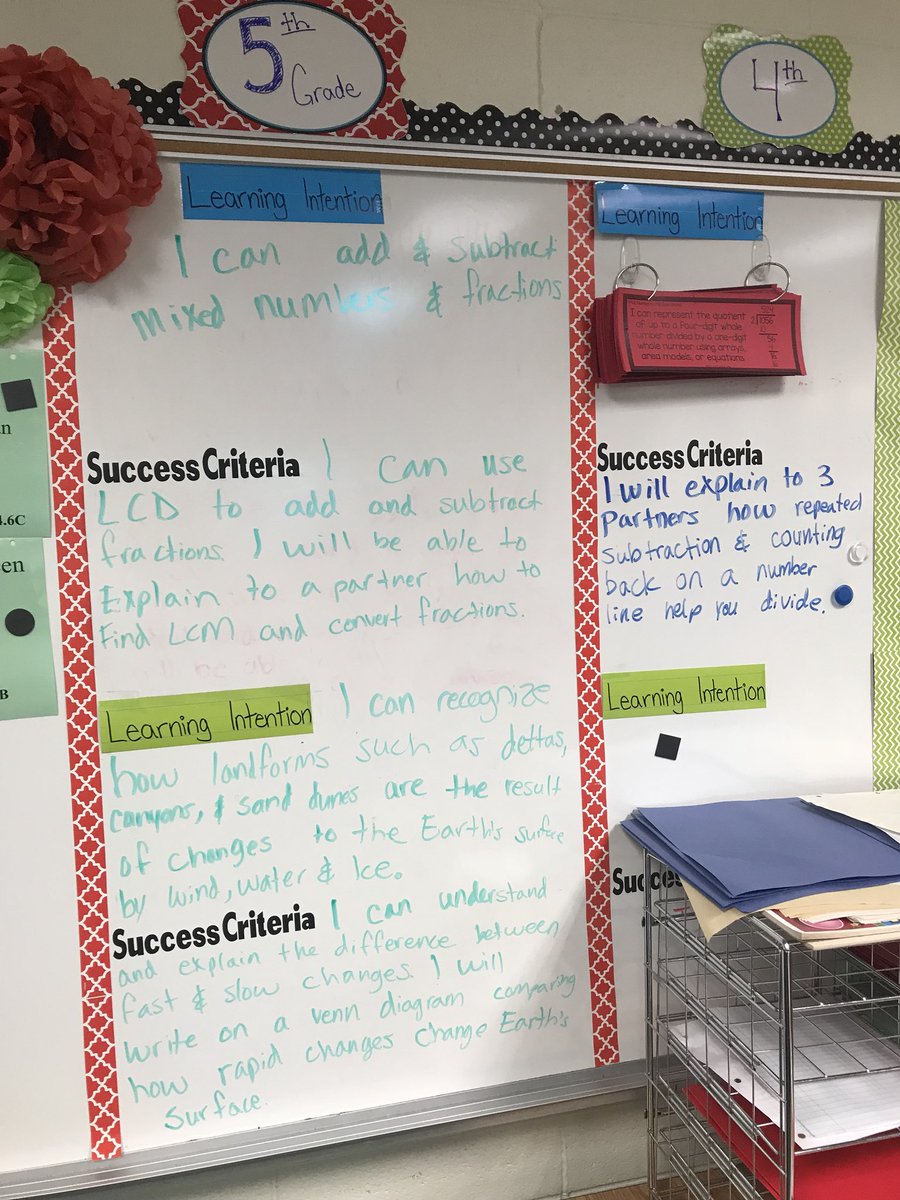 5th
Grade
4th
Learning Intention
I can add & subtract
mixed numbers & fractions
Success Criteria I can use
LCD to add and subtract
fractions. I will be able to
Explain to a partner how to
Find LCM and convert fractions.
Learning Intention I can recognize
how landforms such as deltas,
canyons, & sand dunes are the result
of changes to the Earth's surface
by wind, water & Ice.
Success Criteria I can understand
and explain the difference between
fast & slow changes. I will
write on a venn diagram comparing
how rapid changes change Earth's
surface.
Learning Intention
I can represent the quotient
of up to a four-digit whole
number divided by a one-digit
whole number using arrays,
area models, or equations
Success Criteria
I will explain to 3
Partners how repeated
subtraction & counting
back on a number
line help you divide.
Learning Intention
Succes
an
4.6C
een
B